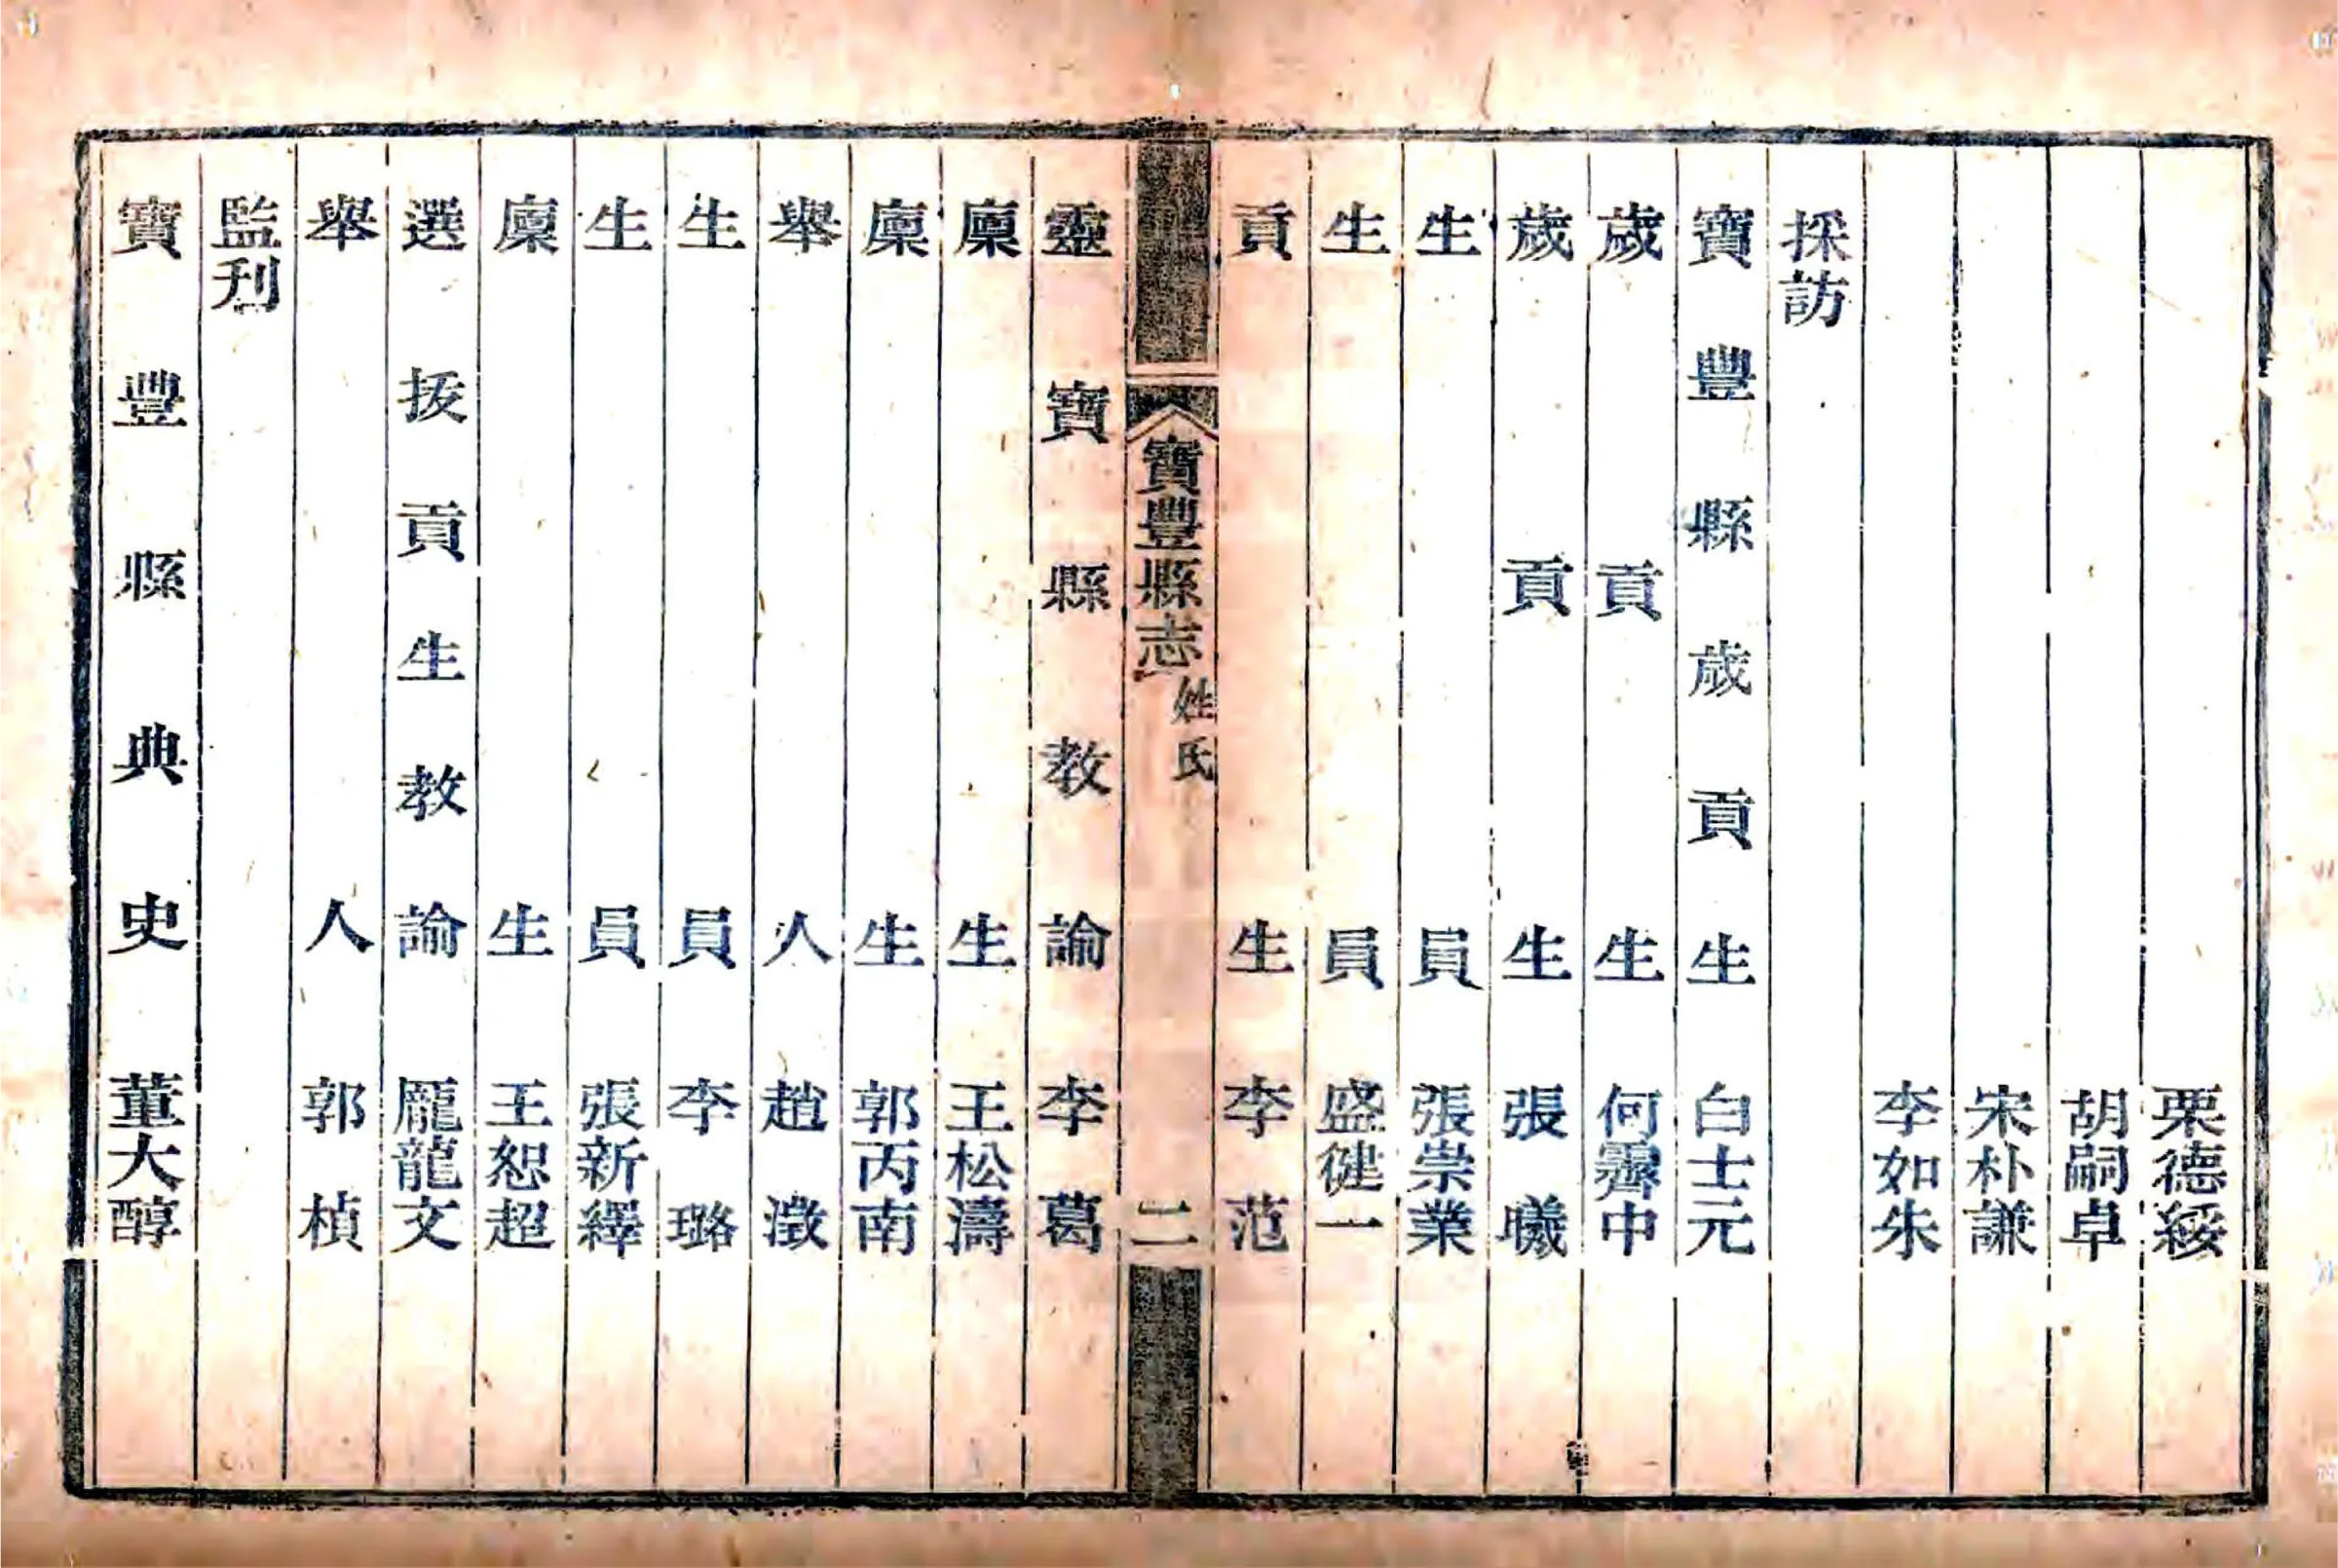 栗德綏
胡嗣卓
宋朴謙
李如朱
採訪
寶豐縣歲貢生 白士元
歲貢生 何霽中
歲貢生 張曦
生員 張崇業
生員 盛健一
貢生 李范
寶豐縣志 姓氏 二
靈寶縣教諭 李葛
廩生 王松濤
廩生 郭丙南
舉人 趙澂
生員 李璐
生員 張新繹
廩生 王恕超
選拔貢生教諭 龎龍文
舉人 郭楨
監刋
寶豐縣典史 董大醇